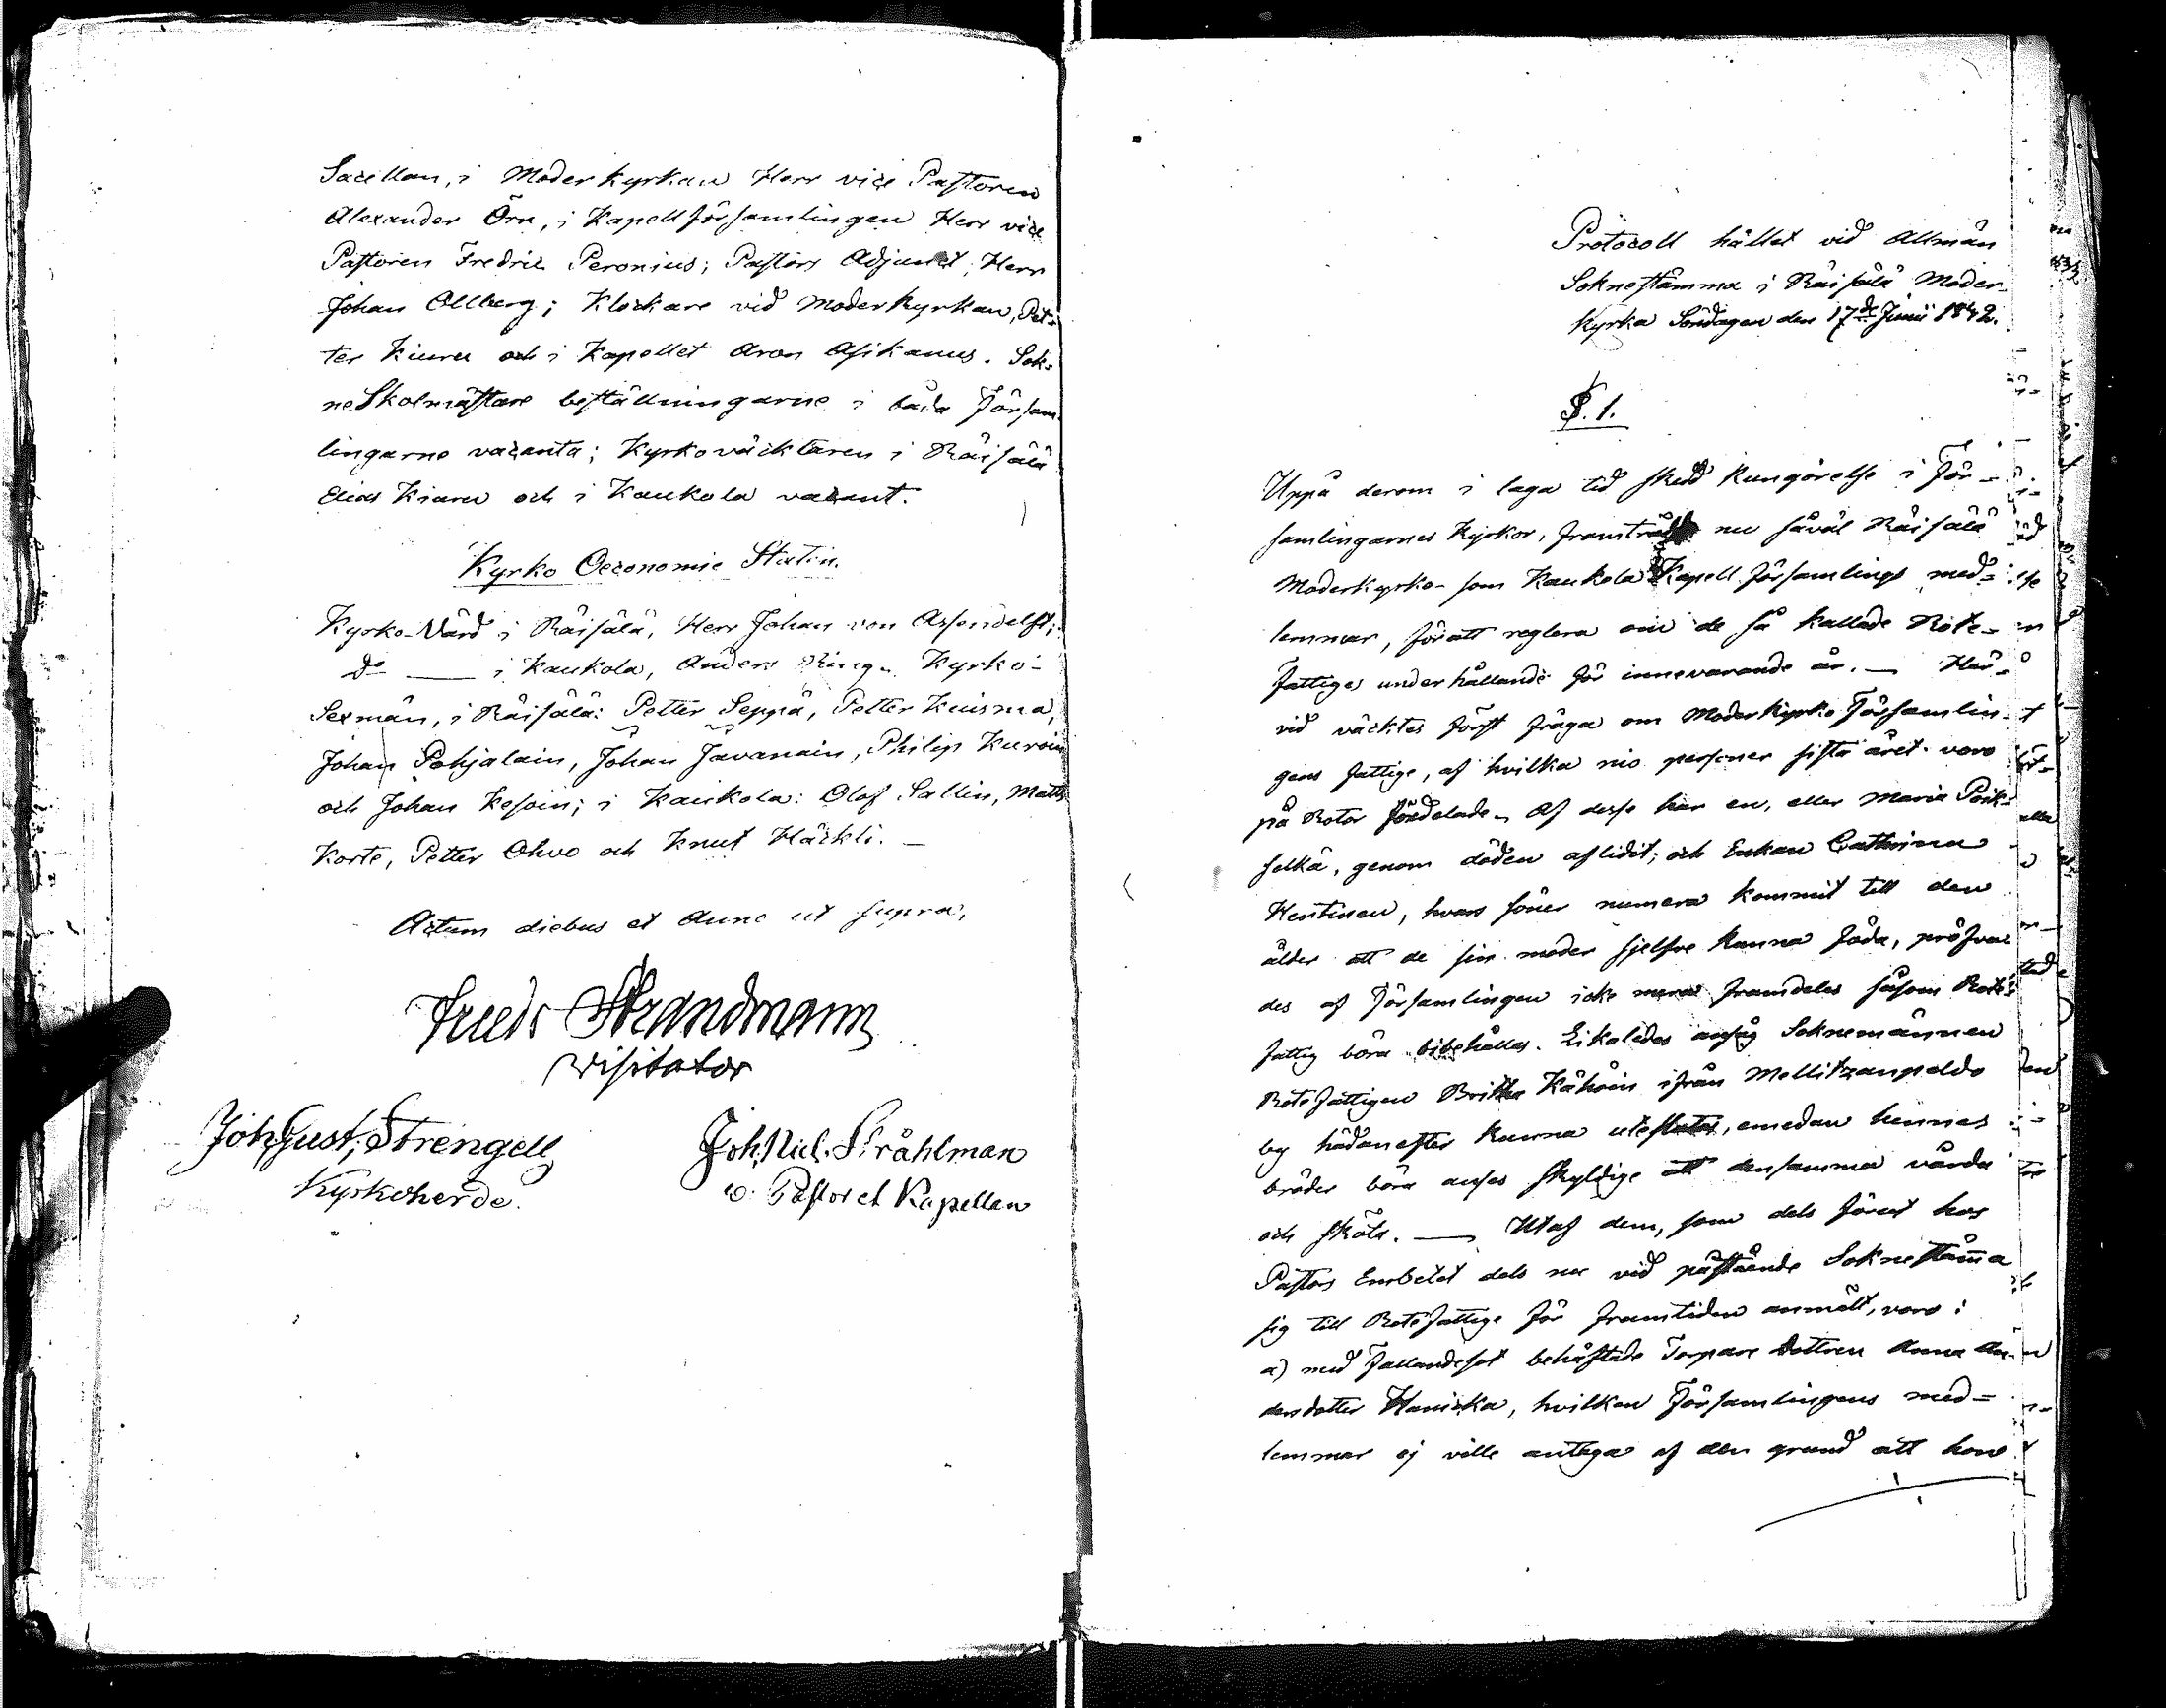 Sacellan, i Moderkyrkan Herr vice Pastoren
Alexander Örn, i Kapellförsamlingen Herr vice
Pastoren Fredric Peronius; Pastors Adjunct, Herr
Johan Ollberg; Klockare vid Moderkyrkan, Pet=
ter Kiuru och i Kapellet Aron Asikanus. Sok=
ne Skolmästare beställningarne i båda Församlingarne
vacanta; Kyrkoväcktaren i Räisälä
Elias Kiuru och i Kaukola vacant.
Kyrko Oeconomie Staten.
Kyrko-Värd i Räisälä, Herr Johan von Assendelft;
do — i Kaukola, Anders Ring. Kyrko-
Sexmän, i Räisälä: Petter Seppä, Petter Kuisma,
Johan Pohjalain, Johan Javanain, Philip Kuroin
och Johan Kesoin; i Kaukola: Olof Sallin, Matts
Korte, Petter Ohvo och Knut Häckli. —
Actum diebus et Anno ut supra,
Strandmann
Visitator
Joh. Gust. Strengell
Kyrkoherde.
Joh. Nicl. Stråhlman
v. Pastor et Kapellan
Protocoll hållet vid Allmän
Soknestämma i Räisälä Moder-
kyrka Söndagen den 17de Junii 1842.
§. 1.
Uppå derom i laga tid skedd kungörelse i För=
samlingarnes Kyrkor, framträdde nu såväl Räisälä
Moderkyrko- som Kaukola Kapell församlings med=
lemmar, för att reglera om de så kallade Rote=
fattiges underhållande för innevarande år. — Här=
vid väcktes först fråga om Moderkyrko Församlin-
gens fattige, af hvilka nio personer sista året voro
på Rotar fördelade. Af desse har en, eller Maria Poik=
selkä, genom döden aflidit; och Enkan Cathrina
Hentinen, hvars söner numera kommit till den
ålder att de sin moder sjelfve kunna föda, pröfva=
des af Församlingen icke mera framdeles såsom Rote=
fattig böra bibehållas. Likaledes ansåg Soknemännen
Rotefattigen Britha Kähöin ifrån Mellitzanpeldo
by hädanefter kunna uteslutas, emedan hennes
bröder böra anses skyldige att densamma vårda
och sköta. — Utaf dem, som dels förut hos
Pastors Embetet dels nu vid påstående Soknestämma
sig till Rotefattige för framtiden anmält, voro:
a) med Fallandesot behäftade Torpare dottren Anna An-
dersdotter Hanicka, hvilken Församlingens med=
lemmar ej ville antaga af den grund att hon